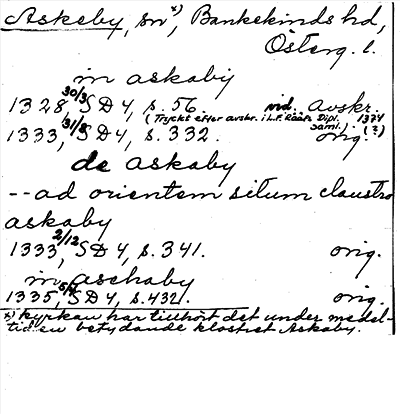 Askeby, sn x), Bankekinds hd,
Österg. l.
in askaby
1328 30/3, SD 4, s. 56. vid. avskr.
(Tryckt efter avskr. i L.F. Rääfs Dipl. saml.) 1374 (?)
1333, 31/8, SD 4, s. 332. orig.
de askaby
-- ad orientem situm claustro
askaby
1333, 2/12, SD 4, s. 341. orig.
in aschaby
1335, SD 4, s. 432. orig.
x) Kyrkan har tillhört det under medel-
tiden betydande klostret Askaby.